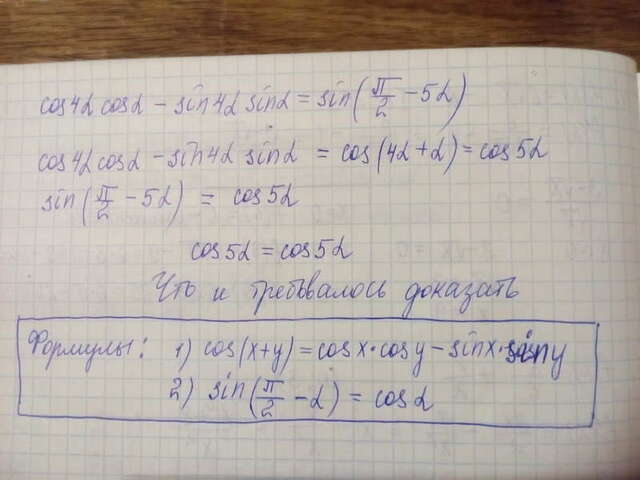 cos4α cosα - sin4α sinα = sin(π/2 - 5α)
cos4α cosα - sin4α sinα = cos(4α + α) = cos5α
sin(π/2 - 5α) = cos5α
cos5α = cos5α
Что и требовалось доказать
Формулы: 1) cos(x+y) = cosx·cosy - sinx·siny
2) sin(π/2 - α) = cosα